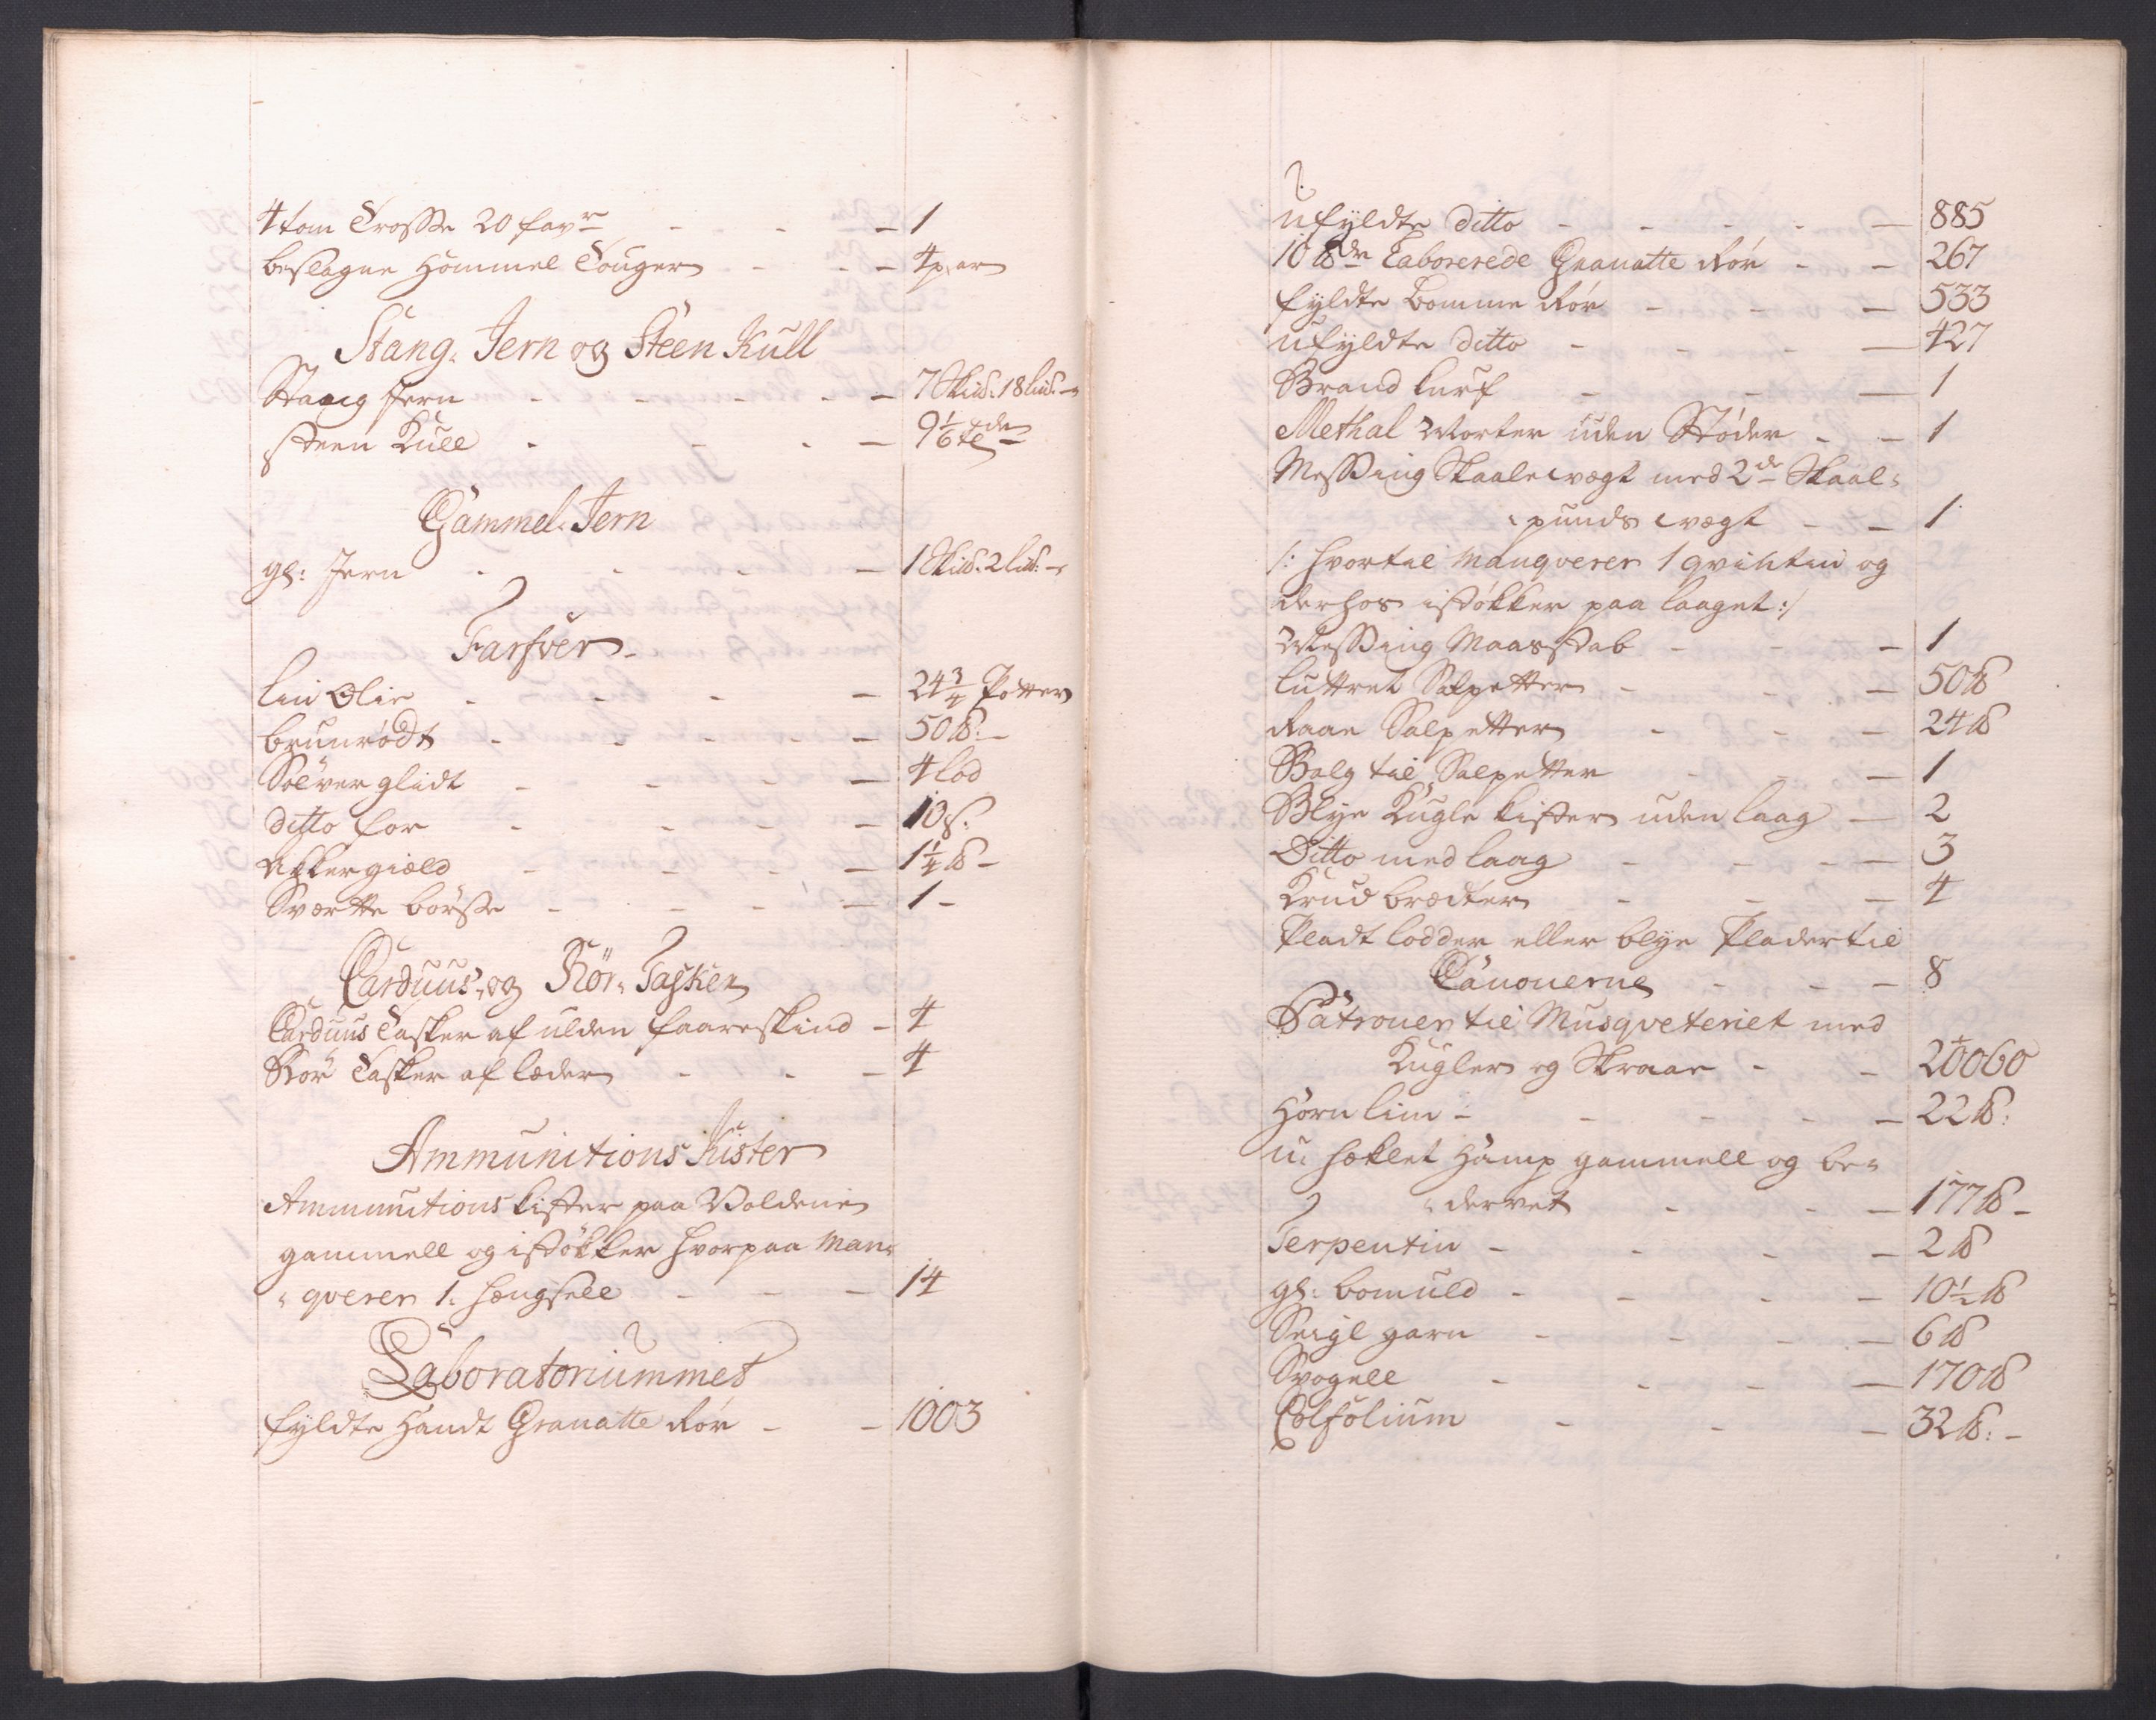 4 tom Trosse 20 favn - - - 1
beslagne Hommel Touger - - - 4 par
Stang- Jern og Steen Kull
Stang Jern - - - - 7 Ski℔: 18 li℔:
steen Kull - - - 9 1/6 tde
Gammel- Jern
gl: Jern - - - - 1 Ski℔: 2 li℔:
Farfver
lin Olie - - - - 24 3/4 Potter
brunrødt - - - - 50 ℔:
Sølverglidt - - - - 4 lod
ditto for - - - - 10 s:
Akkergiæld - - - - 1 1/4 ℔
Sværtte børste - - - - 1
Carduus- og Rør- Tasker
Carduus Tasker af ulden faareskind - 4
Rør Tasker af læder - - - 4
Ammunitions Kister
Ammunitions kister paa Voldene
gammell og istøkker hvorpaa Man-
- qverer 1. hengsell - - - 14
Laboratoriummet
fyldte Handt Granatte Rør - - 1003
ufyldte ditto - - - - 885
10 ℔dr Laborerede Granatte Rør - - 267
fyldte bomme Rør - - - 533
ufyldte ditto - - - 427
Brand kurf - - - 1
Methal Morter uden Støder - - 1
Messing Skaalevægt med 2de Skaal-
- punds vægt - - 1
/: hvortil Manqverer 1 qvintin og
derhos istøkker paa laaget :/
Messing Maasstab - - - 1
luttret Salpetter - - - 50 ℔
Raae Salpetter - - - 24 ℔
Balg til Salpetter - - - 1
Blye Kugle kister uden laag - 2
Ditto med laag - - - - 3
Krud brædter - - - 4
Pladt lodder eller blye Plader til
Canonerne - - - 8
Patroner til Musqveteriet med
Kugler og Skraae - - 20060
Horn lim - - - - 22 ℔:
u. heklet Hamp gammell og be-
- dervet - - - 177 ℔
Terpentin - - - - 2 ℔
gl: bomuld - - - - 10 1/2 ℔
Seigl garn - - - - 6 ℔
Svogell - - - - 170 ℔
Colfolium - - - 32 ℔: